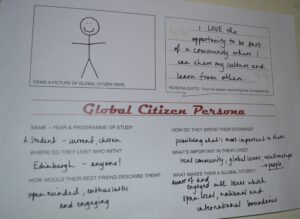 I LOVE the
opportunity to be part
of a community where I
can share my culture and
learn from others
DRAW A PICTURE OF GLOBAL CITIZEN HERE
PERSONA QUOTE:
Global Citizen Persona
NAME – YEAR & PROGRAMME OF STUDY
A Student – current,
WHERE DO THEY LIVE? WHO WITH?
Edinburgh – anyone!
HOW WOULD THEIR BEST FRIEND DESCRIBE THEM?
open minded, enthusiastic
and engaging
HOW DO THEY SPEND THEIR EVENINGS?
prioritising what's most important to them
WHAT'S IMPORTANT IN THEIR LIVES?
local community, global issues, relationships
– people
WHAT MAKES THEM A GLOBAL CITIZEN?
aware of and
engaged with issues which
span local, national and
international boundaries